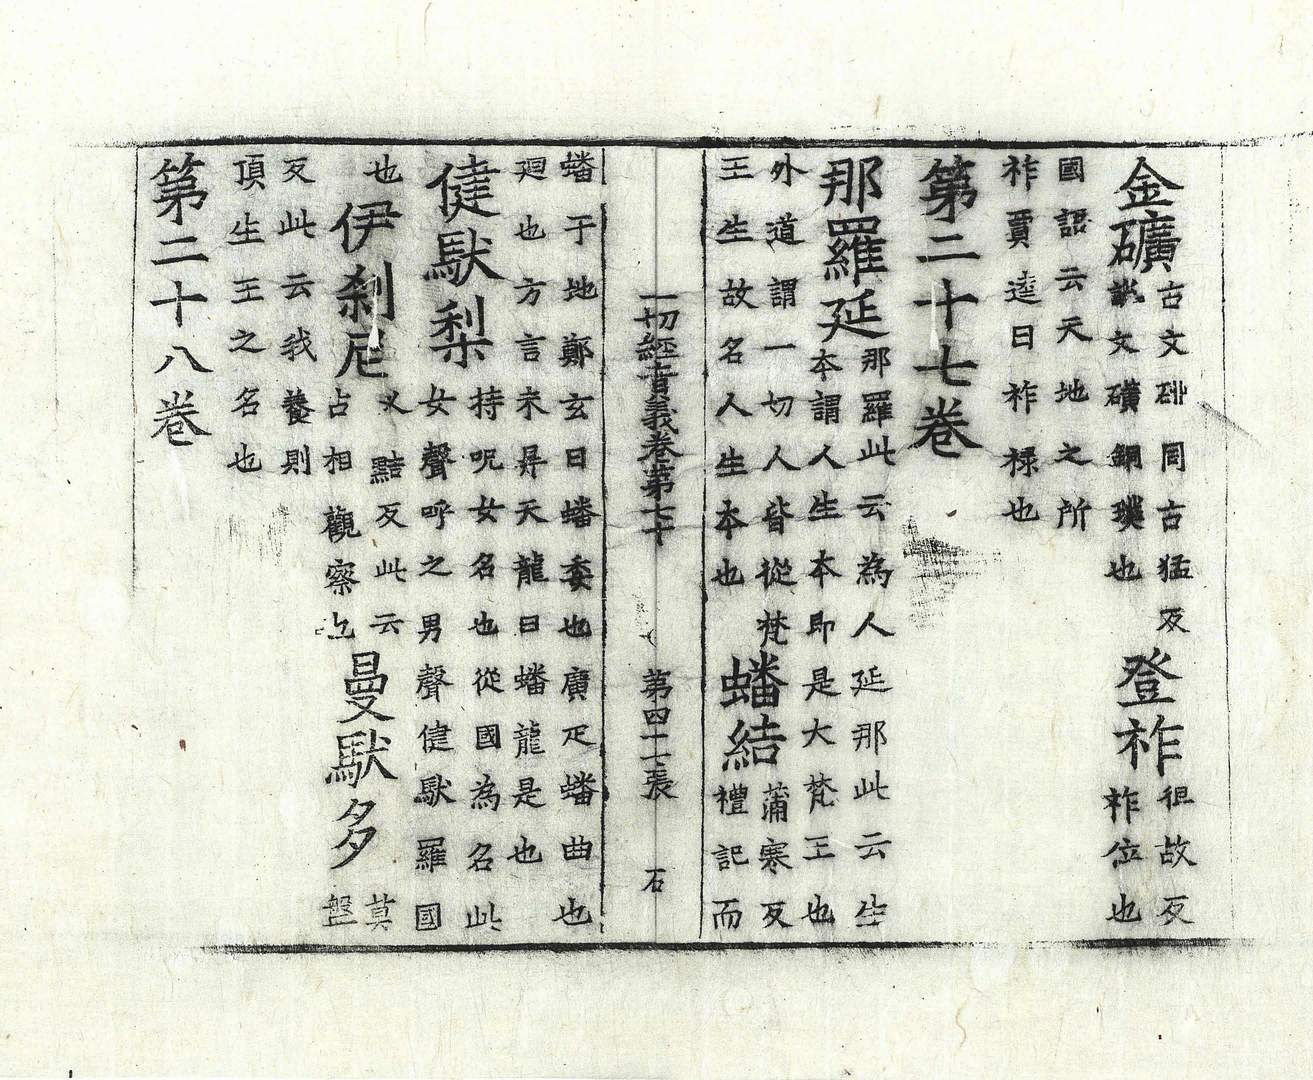 金礦古文砂同古猛反說文礦銅璞也登祚徂故反祚位也
國語云天地之所
祚賈逵曰祚祿也
第二十七卷
那羅延那羅此云為人延那此云生本謂人生本即是大梵王也
外道謂一切人皆從梵
王生故名人生本也蟠結蒲寒反禮記而
一切經音義卷第七十 第四十二張 石
蟠于地鄭玄曰蟠委也廣疋蟠曲也
迴也方言未昇天龍曰蟠龍是也
健馱梨持呪女名也從國為名此女聲呼之男聲健馱羅國
也伊剎尼乂黠反此云占相觀察也曼馱多莫盤
反此云我養則
頂生王之名也
第二十八卷